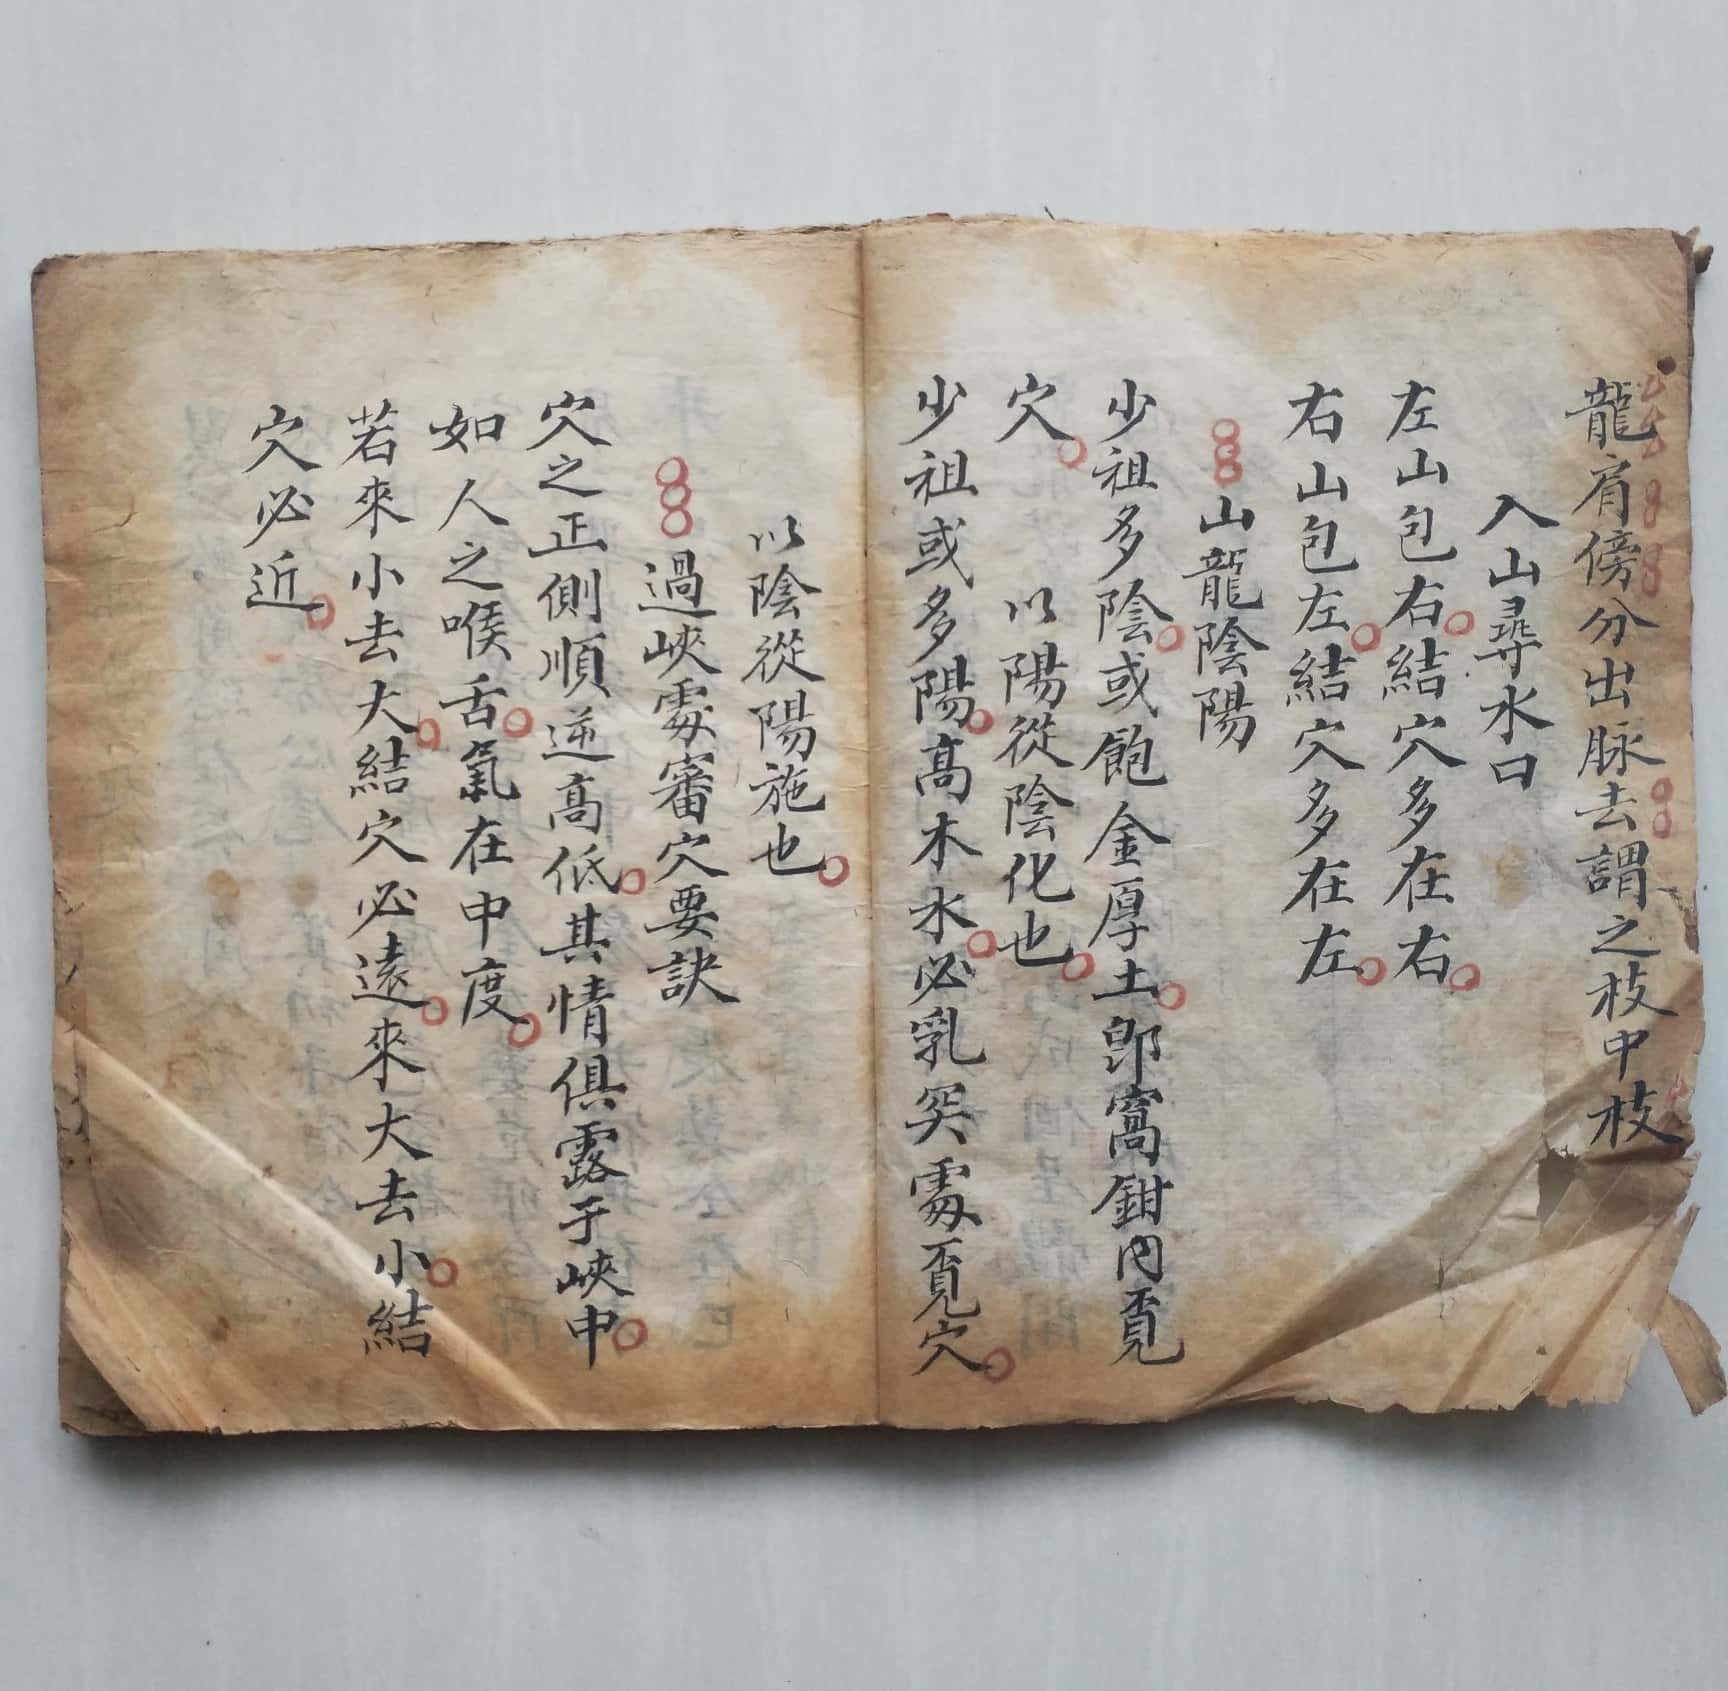 龍肩傍分出脉去謂之枝中枝
入山尋水口
左山包右結穴多在右
右山包左結穴多在左
山龍陰陽
少祖多陰或飽金厚土郎窩鉗內覔
穴 以陽從陰化也
少祖或多陽高木水必乳突處覔穴
以陰從陽施也
過峽處審穴要訣
穴之正側順逆高低其情俱露于峽中
如人之喉舌氣在中度
若來小去大結穴必遠來大去小結
穴必近